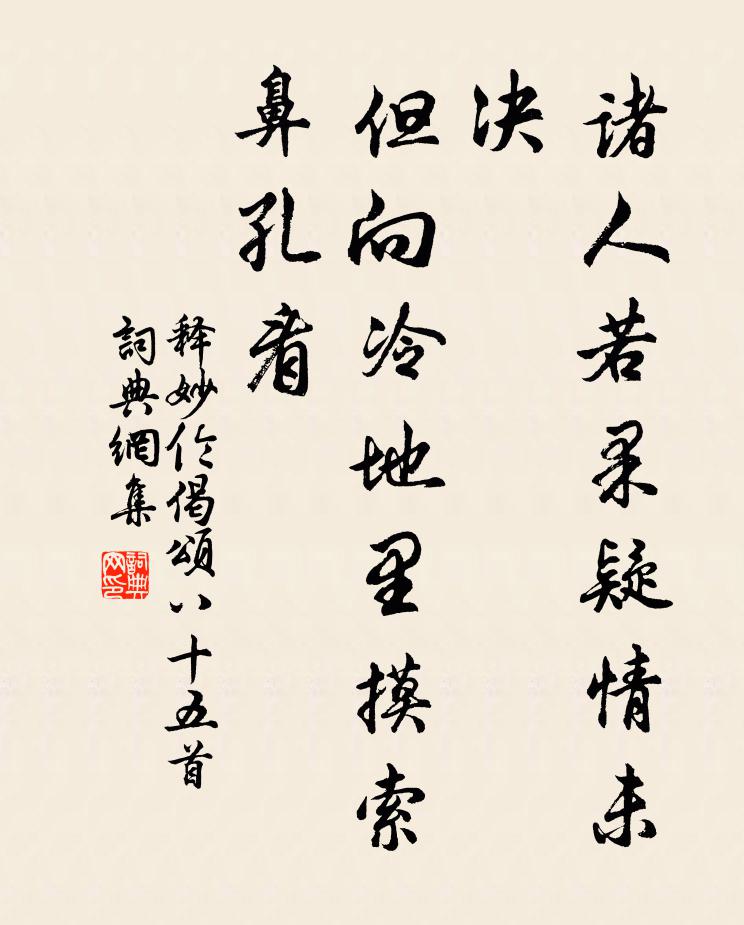 诸人若果疑情未
决
但向冷地里摸索
鼻孔看
释妙伦偈頌八十五首
詞典網集
詞典网印